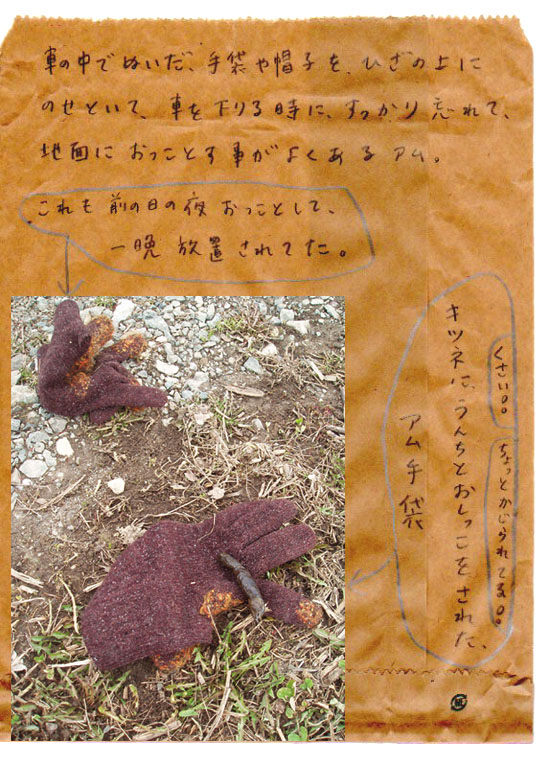 車の中でぬいだ、手袋や帽子を、ひざの上に
のせといて、車を下りる時に、すっかり忘れて、
地面におっことす事がよくあるアム。
これも前の日の夜おっことして、
一晩放置されてた。
くさい。。
ちょっとかじられてる。。
キツネに、うんちとおしっこをされた、
アム手袋